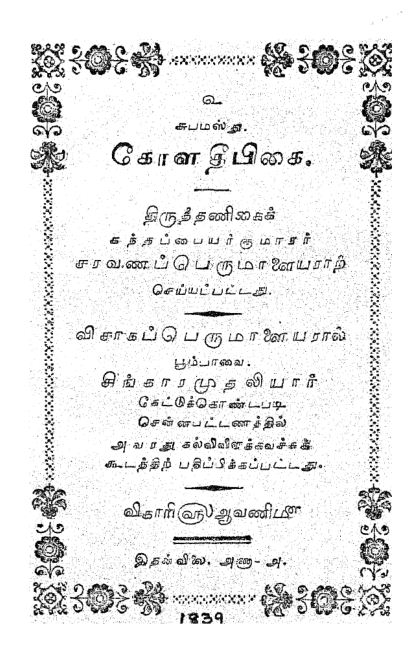 உ
சுபமஸ்து.
கோளதீபிகை.
திருத்தணிகைக்
கந்தப்பையர்குமாரர்
சரவணப்பெருமாளையராற்
செய்யப்பட்டது.
விசாகப்பெருமாளையரால்
பூம்பாவை.
சிங்காரமுதலியார்
கேட்டுக்கொண்டபடி
சென்னபட்டணத்தில்
அவரது கல்விவிளக்கவச்சுக்
கூடத்திற் பதிப்பிக்கப்பட்டது.
விகாரி௵ ஆவணி௴
இதன்விலை,
1839